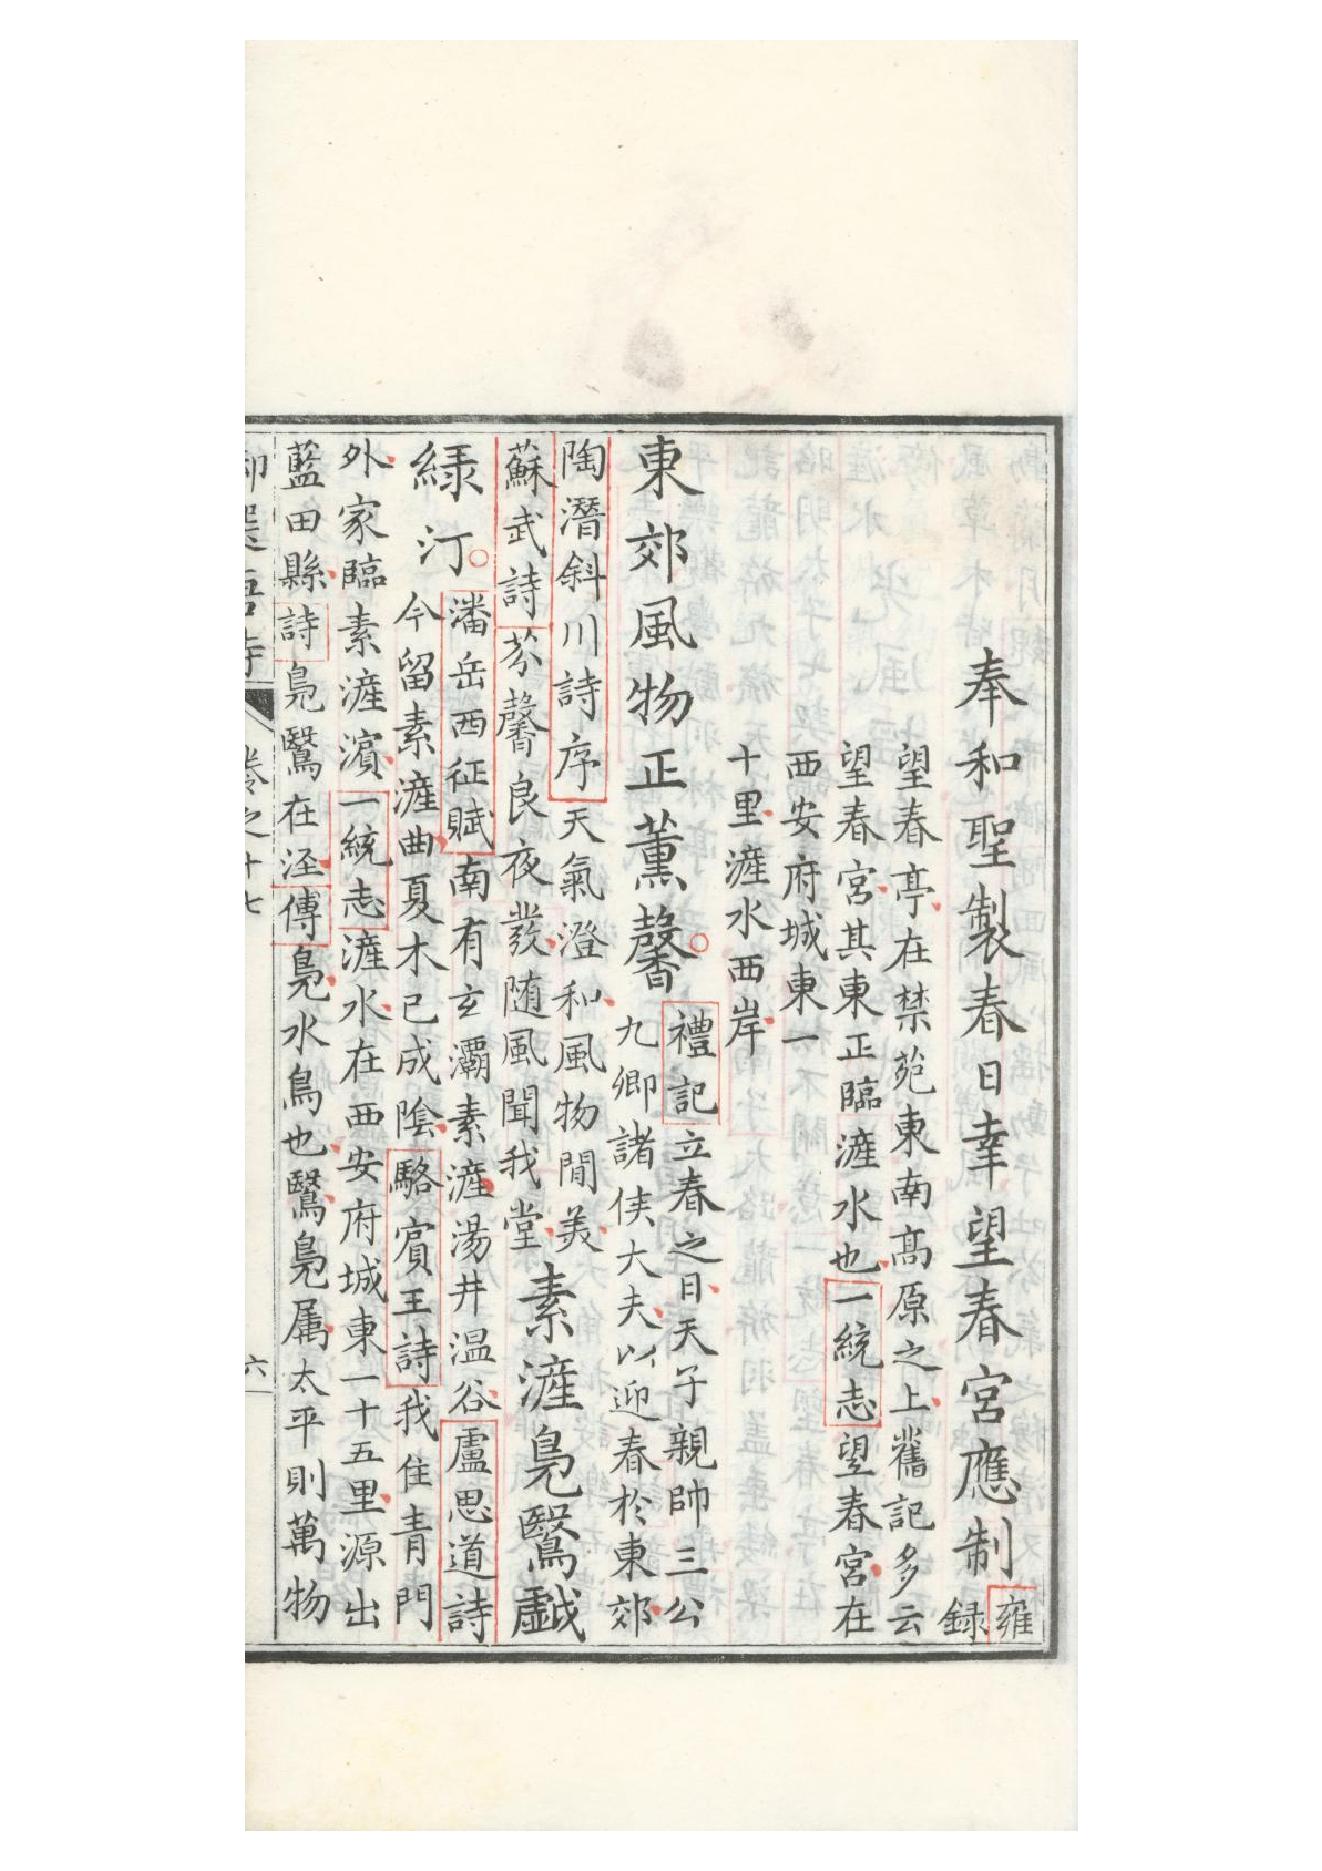 奉和聖製春日幸望春宮應制雍
録
望春亭在禁苑東南高原之上舊記多云
望春宮其東正臨滻水也一統志望春宮在
西安府城東一
十里滻水西岸
東郊風物正薰馨禮記立春之日天子親帥三公
九卿諸侯大夫以迎春於東郊
陶潛斜川詩序天氣澄和風物閒美
蘇武詩芬馨良夜發随風聞我堂素滻鳧鷖戯
緑汀潘岳西征賦南有玄灞素滻湯井温谷盧思道詩
今留素滻曲夏木已成隂駱賔王詩我住青門
外家臨素滻濵一統志滻水在西安府城東一十五里源出
藍田縣詩鳧鷖在涇傳鳧水鳥也鷖鳧属太平則萬物
卷之十七
六